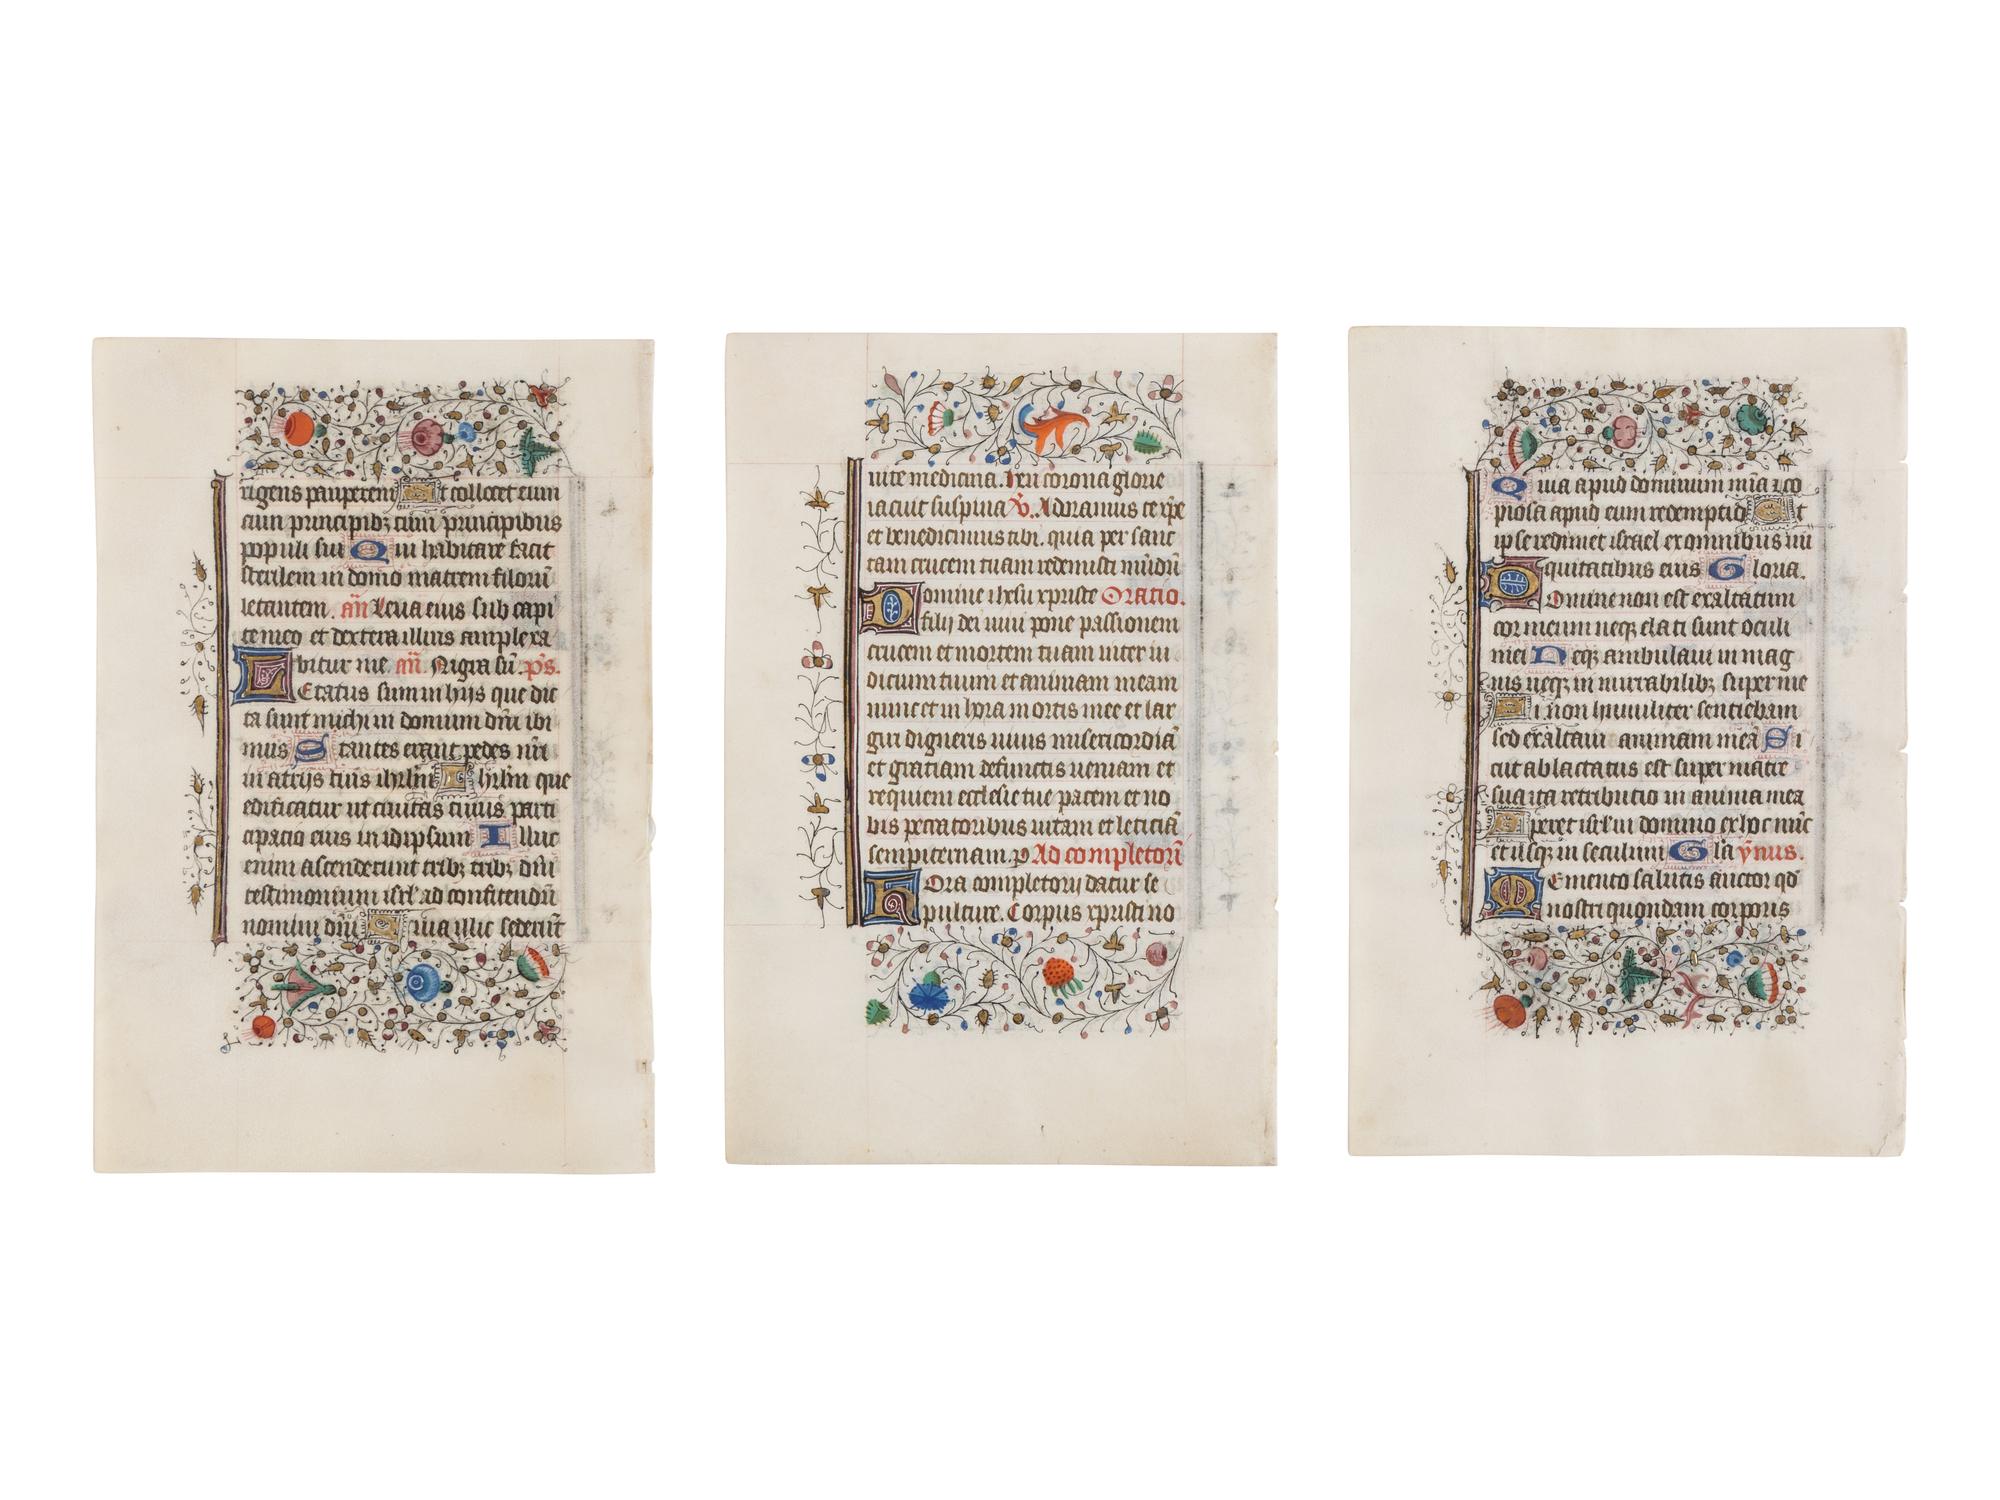 rigens pauperem Et collocet eum
cum principibꝫ cum principibus
populi sui Qui habitare facit
sterilem in domo matrem filiorū
letantem. an̄ Leua eius sub capi
te meo et dextera illius amplexa
bitur me. an̄. Nigra sū. p̄s.
Letatus sum in hijs que dic
ta sunt michi in domum dn̄i ibi
mus Stantes erant pedes nr̄i
in atrijs tuis ihrlm̄ Ihrlm̄ que
edificatur ut ciuitas cuius parti
cipacio eius in idipsum Illuc
enim ascenderunt tribꝫ tribꝫ dn̄i
testimonium isrl̓ ad confitendū
nomini dn̄i Quia illic sederūt
uite medicina. Ihū corona glorie
iacuit suspina v̄. Adoramus te xp̄e
et benedicimus tibi. quia per sanc
tam crucem tuam redemisti mūdū
Domine ihesu xpriste Oratio.
filij dei uiui pone passionem
crucem et mortem tuam inter iu
dicium tuum et animam meam
nunc et in hora mortis mee et lar
giri digneris uiuis misericordiā
et gratiam defunctis ueniam et
requiem ecclesie tue pacem et no
bis peccatoribus uitam et leticiā
sempiternam. p̄ Ad completoriū
Hora completorij datur se
pulture. Corpus xpristi no
Quia apud dominum mīa ⁊ co
piosa apud eum redemptio Et
ipse redimet israel ex omnibus ini
quitatibus eius Gloria.
Domine non est exaltatum
cor meum neqꝫ elati sunt oculi
mei Neqꝫ ambulaui in mag
nis neqꝫ in mirabilibꝫ super me
Si non humiliter sentiebam
sed exaltaui animam meā Si
cut ablactatus est super matre
sua ita retributio in anima mea
Speret isrl̓ in domino ex hoc nūc
et usqꝫ in seculum Gl̄a ȳnus.
Memento salutis auctor qd̓
nostri quondam corporis